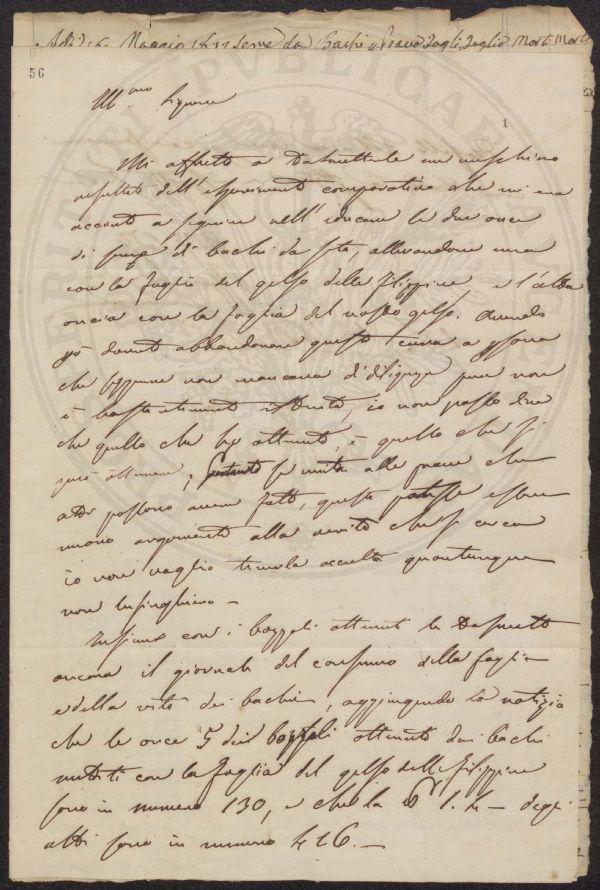 Adì 16 Maggio Seme da Bachi Foglia Morti Morti
56
Ill.mo Signore
1
Mi affretto a trasmetterle un meschino
resultato dell' esperimento comparativo che mi era
accinto a seguire nell' educare le due once
di seme di bachi da seta, allevandone una
con la foglia del gelso delle Filippine e l'altra
oncia con la foglia del nostro gelso. Avendo
però dovuto abbandonare questa cura a persona
che seppure non mancava di diligenza pure non
è bastantemente istruita, io non posso dire
che quello che ho ottenuto, è quello che si
può ottenere; Soltanto se unita alle prove che
altri possono avere fatto, questa potesse essere
nuovo argomento alla verità che si cerca
io non voglio tenerla occulta quantunque
non lusinghiera —
Insieme con i bozzoli ottenuti le trasmetto
ancora il giornale del consumo della foglia
e della vita dei bachi, aggiungendo la notizia
che le once 5 dei bozzoli ottenuti dai bachi
nutriti con la foglia del gelso delle Filippine
sono in numero 130, e che la 1. 4 — degli
altri sono in numero 426. —